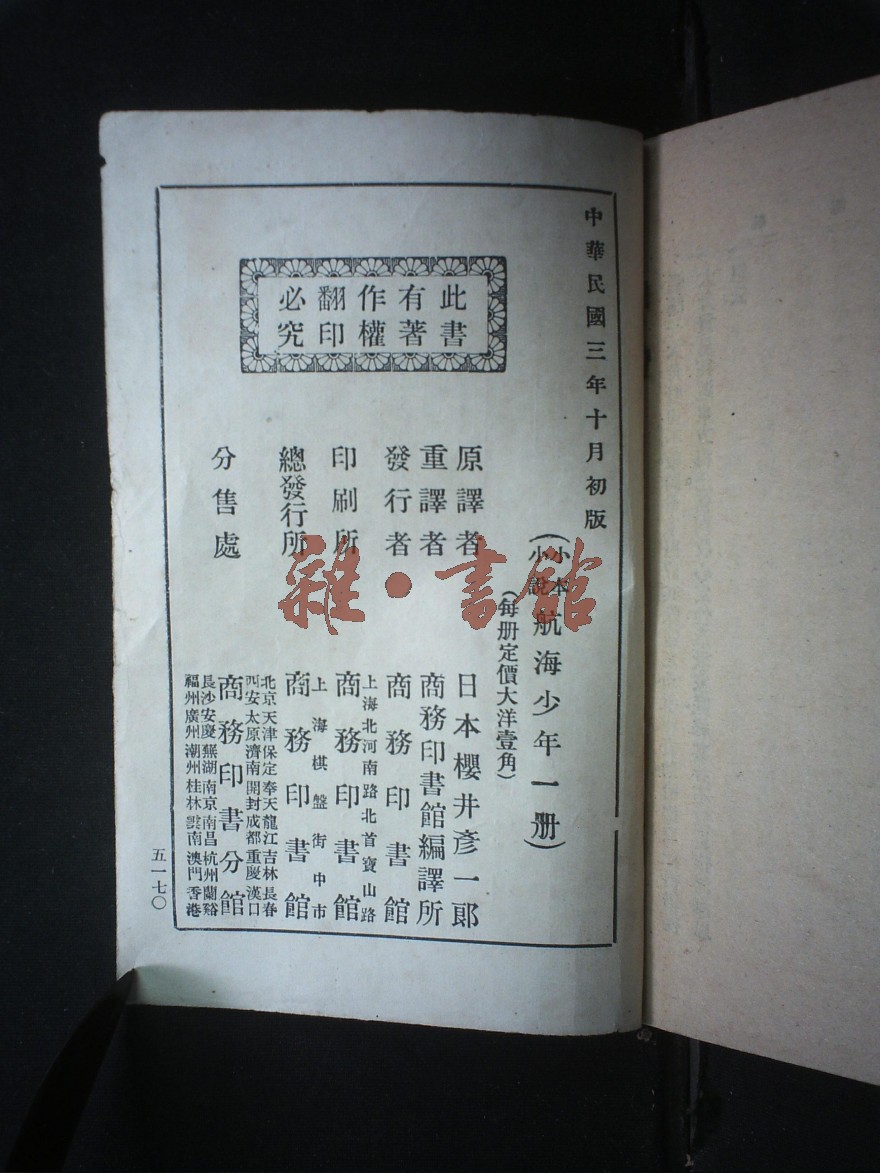 中華民國三年十月初版
（小本小說航海少年一册）
（每册定價大洋壹角）
此書
有著
作權
翻印
必究
原譯者 日本櫻井彥一郎
重譯者 商務印書館編譯所
發行者 商務印書館
上海北河南路北首寶山路
印刷所 商務印書館
上海棋盤街中市
總發行所 商務印書館
北京天津保定奉天龍江吉林長春
西安太原濟南開封成都重慶漢口
分售處 商務印書分館
長沙安慶蕪湖南京南昌杭州蘭谿
福州廣州潮州桂林雲南澳門香港
五一七〇
雜·書館